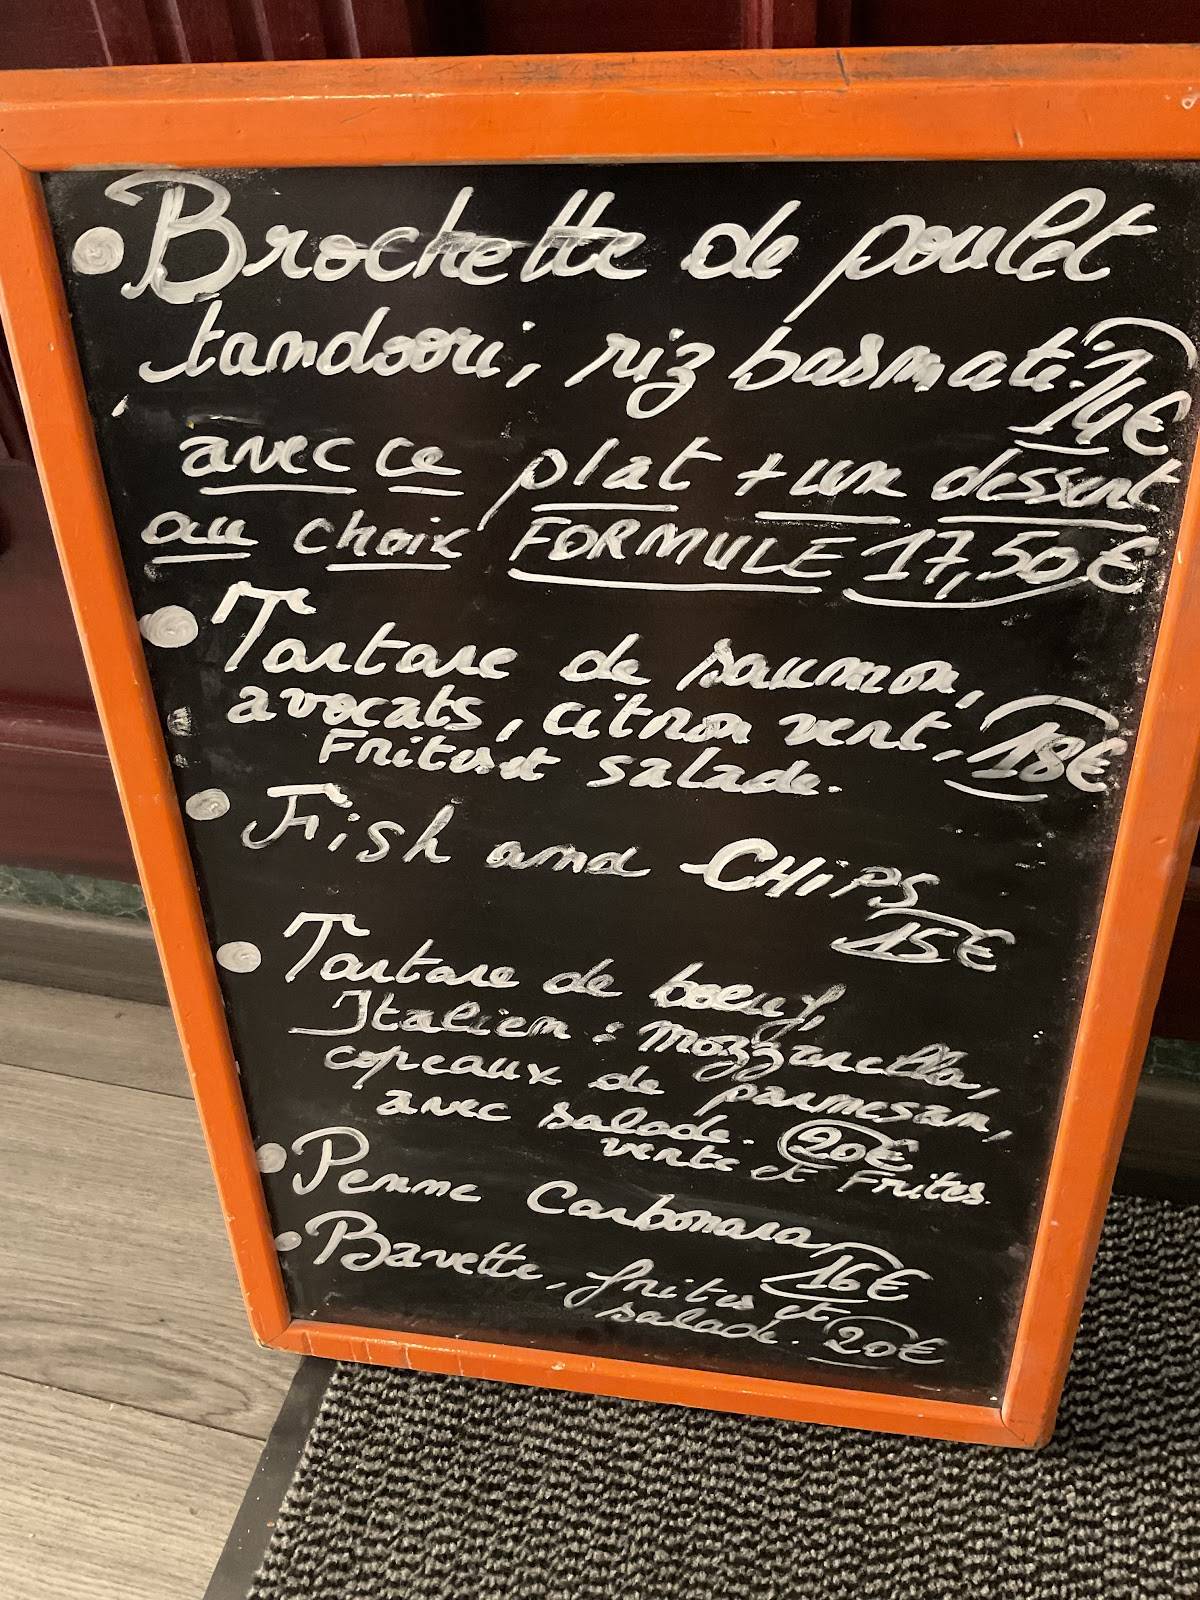 • Brochette de poulet
tandoori, riz basmati. 14€
avec ce plat + un dessert
au choix FORMULE 17,50€
• Tartare de saumon,
avocats, citron vert, 18€
Frites et salade.
• Fish and CHiPS
15€
• Tartare de boeuf,
Italien : mozzarella,
copeaux de parmesan,
avec salade. 20€
verte et Frites.
• Penne Carbonara,
16€
• Bavette, frites et
salade. 20€